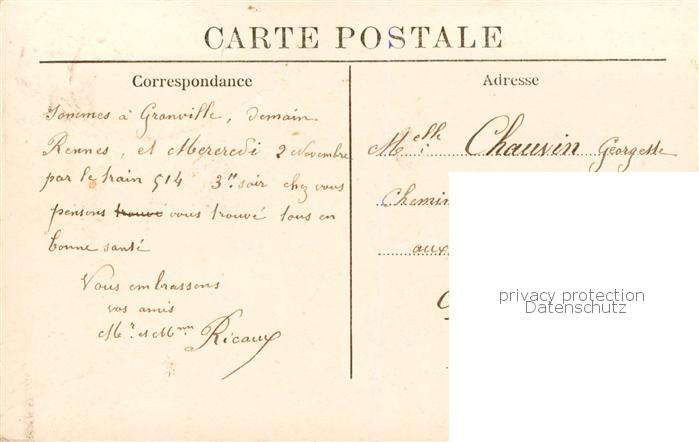 CARTE POSTALE
Correspondance
Sommes à Granville, demain
Rennes, et Mercredi 2 Novembre
par le train 514 3" soir chez vous
pensons trouvé vous trouvé tous en
bonne santé
Vous embrassons
vos amis
Mr. et Mme Ricaux
Adresse
Melle Chauvin Georgette
Chemin
aux
privacy protection
Datenschutz